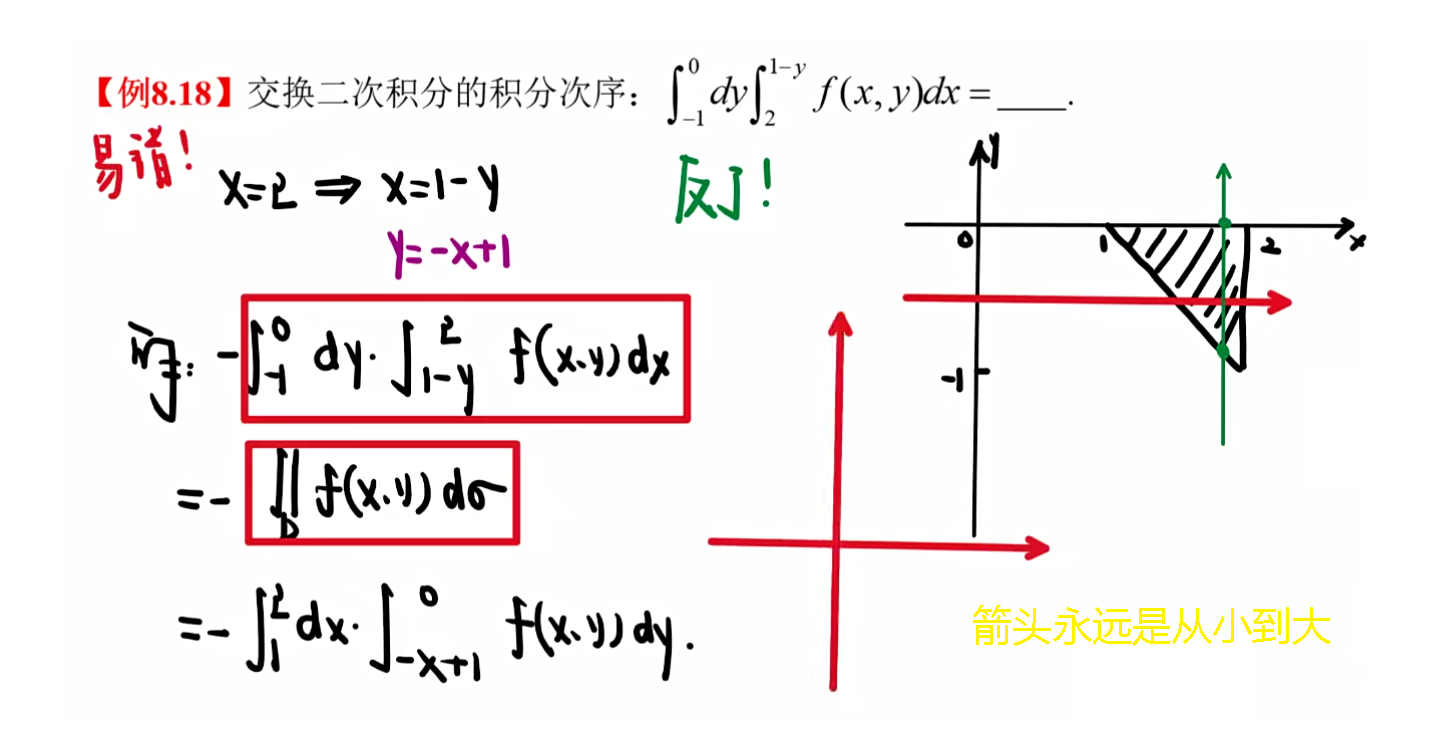 【例8.18】交换二次积分的积分次序：∫_{-1}^{0} dy∫_{2}^{1-y} f(x,y)dx = ____.
易错！
反了！
x=2 ⇒ x=1-y
y=-x+1
原式：-∫_{-1}^{0} dy·∫_{1-y}^{2} f(x,y)dx
=-∬_D f(x,y)dσ
=-∫_{1}^{2}dx·∫_{-x+1}^{0} f(x,y)dy.
y
0 1 2 x
-1
箭头永远是从小到大